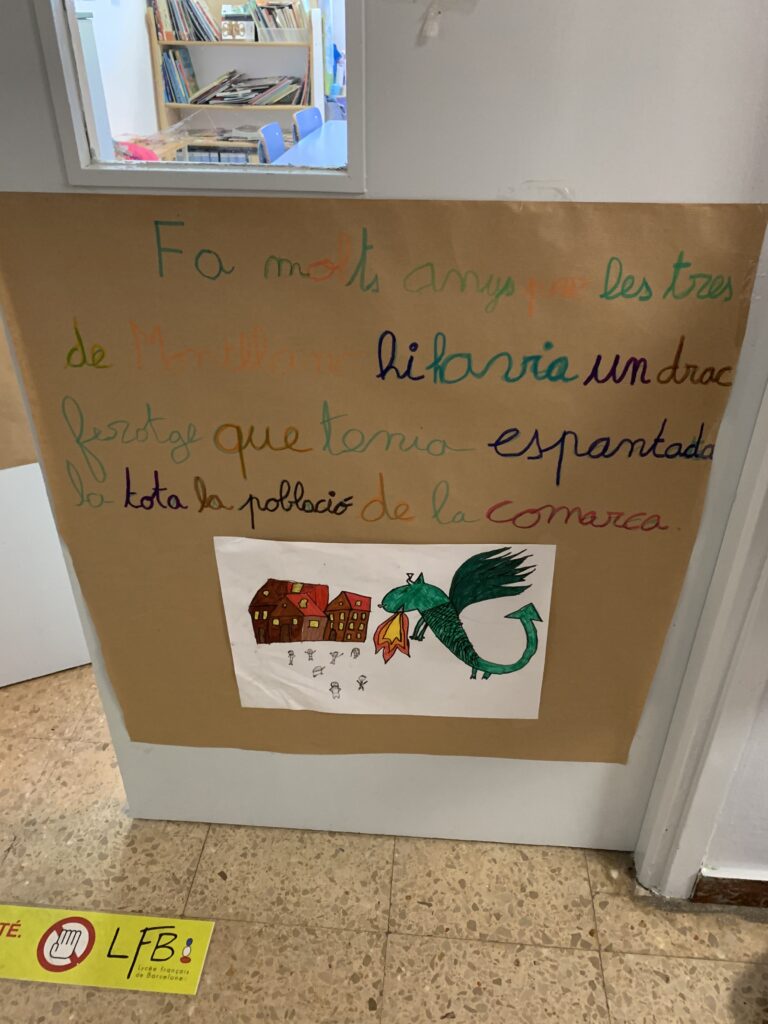 Fa molts anys per les tres
de Montblanc hi havia un drac
ferotge que tenia espantada
la tota la població de la comarca.
TÉ.
LFB
Lycée français
de Barcelone